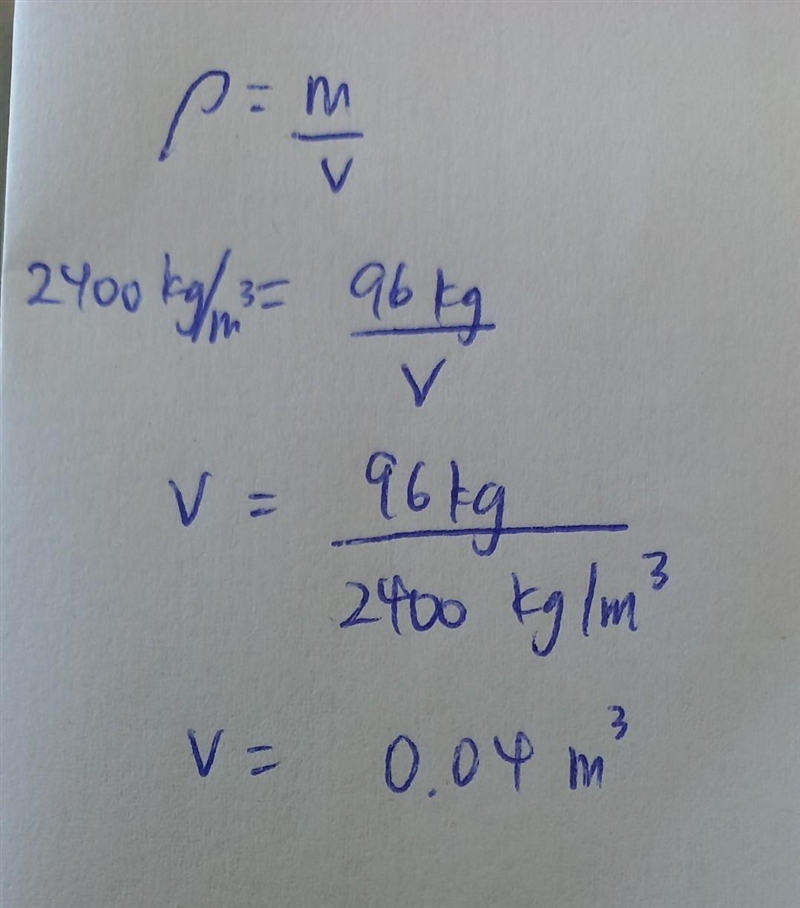 ρ = m/V
2400 kg/m³ = 96 kg/V
V = 96 kg/2400 kg/m³
V = 0.04 m³